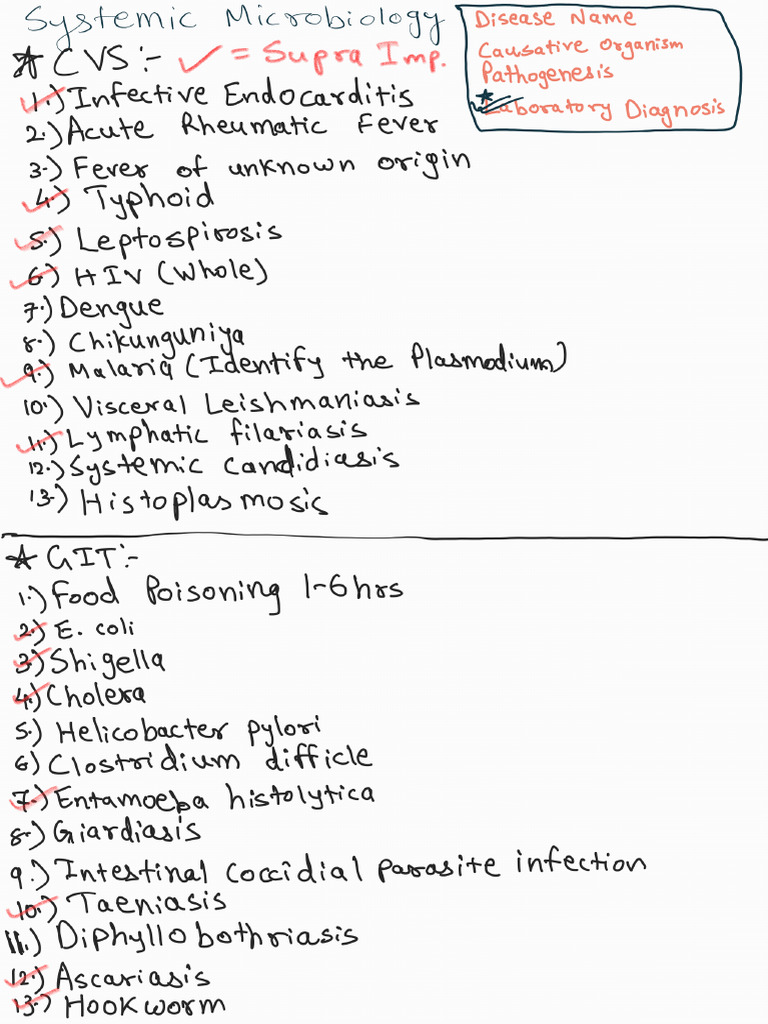 Systemic Microbiology
Disease Name
Causative Organism
Pathogenesis
★ Laboratory Diagnosis
★ CVS:- ✓ = Supra Imp.
1.) Infective Endocarditis
2.) Acute Rheumatic Fever
3.) Fever of unknown origin
4.) Typhoid
5.) Leptospirosis
6.) HIV (Whole)
7.) Dengue
8.) Chikunguniya
9.) Malaria (Identify the Plasmodium)
10.) Visceral Leishmaniasis
11.) Lymphatic filariasis
12.) Systemic candidiasis
13.) Histoplasmosis
★ GIT:-
1.) Food Poisoning 1-6hrs
2.) E. coli
3.) Shigella
4.) Cholera
5.) Helicobacter pylori
6) Clostridium difficle
7.) Entamoeba histolytica
8.) Giardiasis
9.) Intestinal coccidial parasite infection
10.) Taeniasis
11.) Diphyllobothriasis
12.) Ascariasis
13.) Hookworm